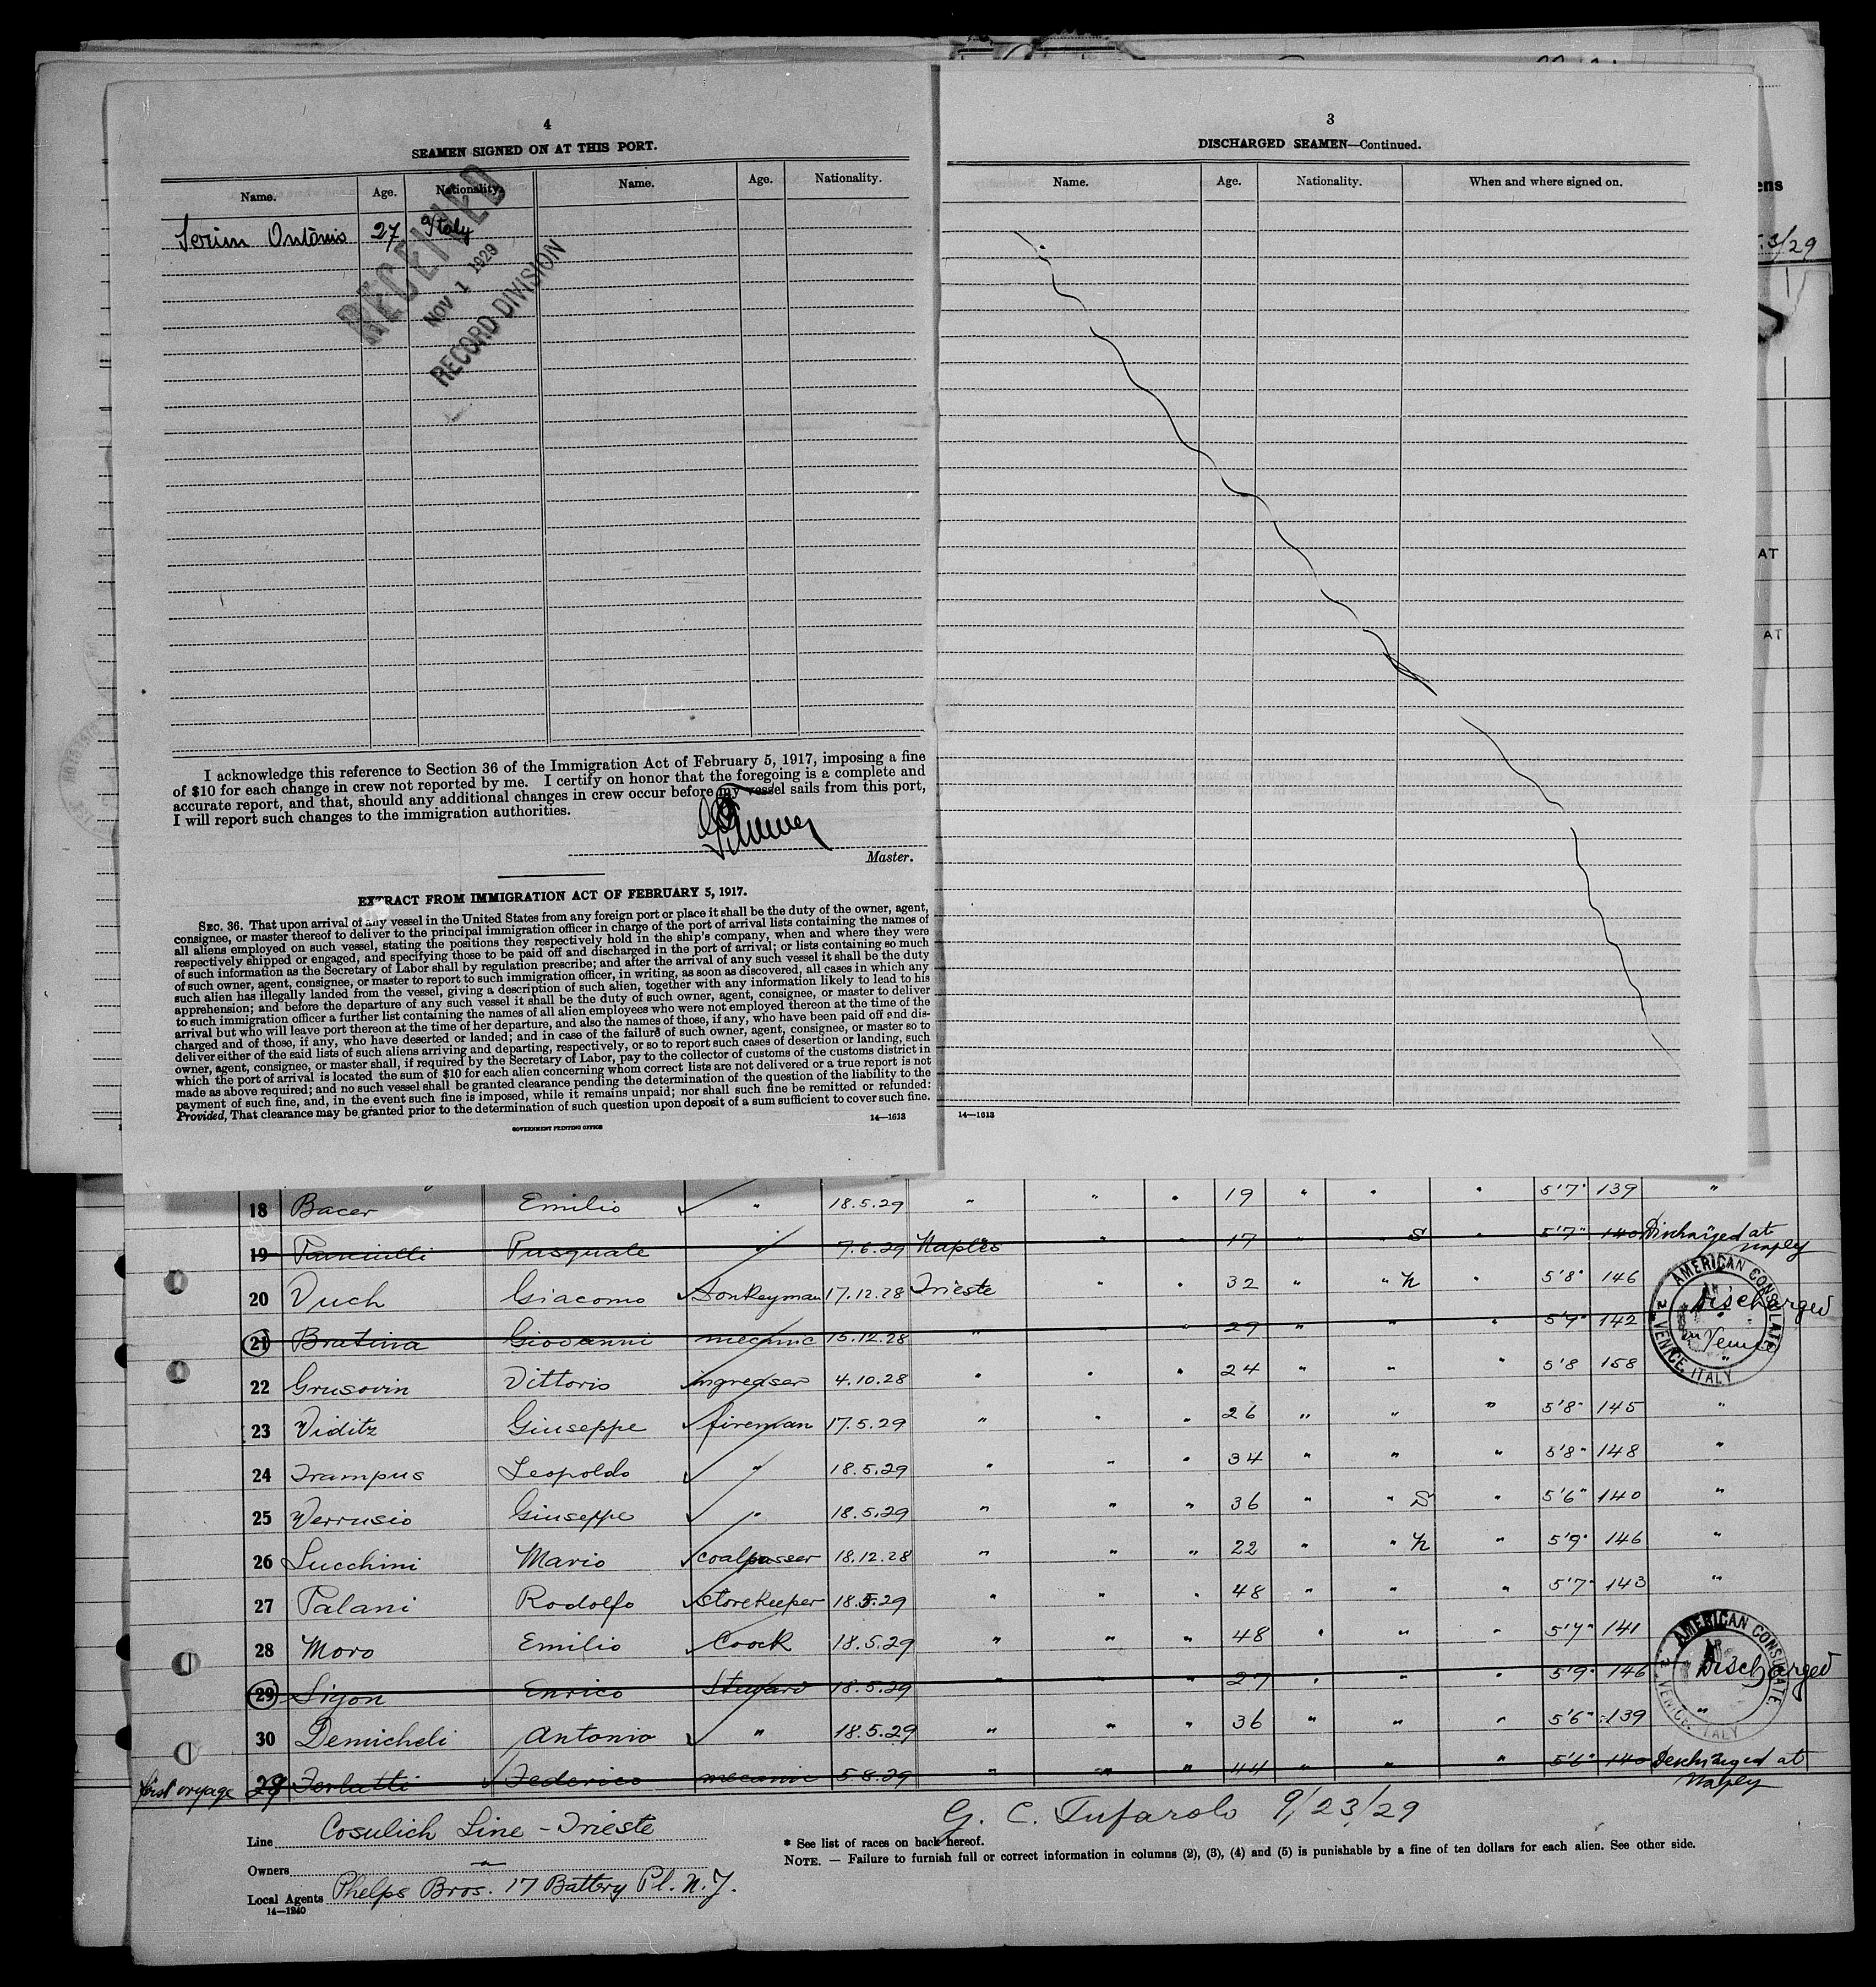 4
SEAMEN SIGNED ON AT THIS PORT.
Name. Age. Nationality. Name. Age. Nationality.
Serim Antonio 27 Italy
RECEIVED
NOV 1 1929
RECORD DIVISION
I acknowledge this reference to Section 36 of the Immigration Act of February 5, 1917, imposing a fine
of $10 for each change in crew not reported by me. I certify on honor that the foregoing is a complete and
accurate report, and that, should any additional changes in crew occur before my vessel sails from this port,
I will report such changes to the immigration authorities.
Master.
EXTRACT FROM IMMIGRATION ACT OF FEBRUARY 5, 1917.
SEC. 36. That upon arrival of any vessel in the United States from any foreign port or place it shall be the duty of the owner, agent,
consignee, or master thereof to deliver to the principal immigration officer in charge of the port of arrival lists containing the names of
all aliens employed on such vessel, stating the positions they respectively hold in the ship's company, when and where they were
respectively shipped or engaged, and specifying those to be paid off and discharged in the port of arrival; or lists containing so much
of such information as the Secretary of Labor shall by regulation prescribe; and after the arrival of any such vessel it shall be the duty
of such owner, agent, consignee, or master to report to such immigration officer, in writing, as soon as discovered, all cases in which any
such alien has illegally landed from the vessel, giving a description of such alien, together with any information likely to lead to his
apprehension; and before the departure of any such vessel it shall be the duty of such owner, agent, consignee, or master to deliver
to such immigration officer a further list containing the names of all alien employees who were not employed thereon at the time of the
arrival but who will leave port thereon at the time of her departure, and also the names of those, if any, who have been paid off and dis-
charged and of those, if any, who have deserted or landed; and in case of the failure of such owner, agent, consignee, or master so to
deliver either of the said lists of such aliens arriving and departing, respectively, or so to report such cases of desertion or landing, such
owner, agent, consignee, or master shall, if required by the Secretary of Labor, pay to the collector of customs of the customs district in
which the port of arrival is located the sum of $10 for each alien concerning whom correct lists are not delivered or a true report is not
made as above required; and no such vessel shall be granted clearance pending the determination of the question of the liability to the
payment of such fine, and, in the event such fine is imposed, while it remains unpaid; nor shall such fine be remitted or refunded:
Provided, That clearance may be granted prior to the determination of such question upon deposit of a sum sufficient to cover such fine.
14—1613
GOVERNMENT PRINTING OFFICE
3
DISCHARGED SEAMEN—Continued.
Name. Age. Nationality. When and where signed on.
14—1613
ens
3/29
AT
AT
18 Bacer Emilio " 18.5.29 " " " 19 " " " 5'7" 139 "
19 Pasquale " 7.6.29 Naples " " 17 " S " 5'7" 140 Discharged at
Naples
20 Vuch Giacomo Donkeyman 17.12.28 Trieste " " 32 " " N " 5'8" 146
21 Bratina Giovanni mecanic 15.12.28 " " 29 " " " 5'9" 142 Discharged
in Venice
AMERICAN CONSULATE
VENICE, ITALY
22 Grusovin Vittorio ingreaser 4.10.28 " " " 24 " " " 5'8 158 "
23 Viditz Giuseppe fireman 17.5.29 " " " 26 " " " 5'8" 145 "
24 Trampus Leopoldo " 18.5.29 " " " 34 " " " 5'8" 148 "
25 Verrusio Giuseppe " 18.5.29 " " " 36 " " S " 5'6" 140 "
26 Lucchini Mario coalpasser 18.12.28 " " " 22 " " N " 5'9" 146 "
27 Talani Rodolfo storekeeper 18.5.29 " " " 48 " " " 5'7" 143 "
28 Moro Emilio Coock 18.5.29 " " " 48 " " " 5'7" 141
29 Enrico Steward 18.5.29 " " " 27 " " " 5'9" 146 Discharged
AMERICAN CONSULATE
VENICE, ITALY
30 Demicheli Antonio " 18.5.29 " " " 36 " " " 5'6" 139 "
first voyage Terlatti Federico mecanic 5.8.29 " " " 44 " " " 5'6" 140 Descharged at
Naples
Line Cosulich Line - Trieste
G. C. Tufarolo 9/23/29
* See list of races on back hereof.
Owners "
NOTE. — Failure to furnish full or correct information in columns (2), (3), (4) and (5) is punishable by a fine of ten dollars for each alien. See other side.
Local Agents Phelps Bros. 17 Battery Pl. N.Y.
14—1240